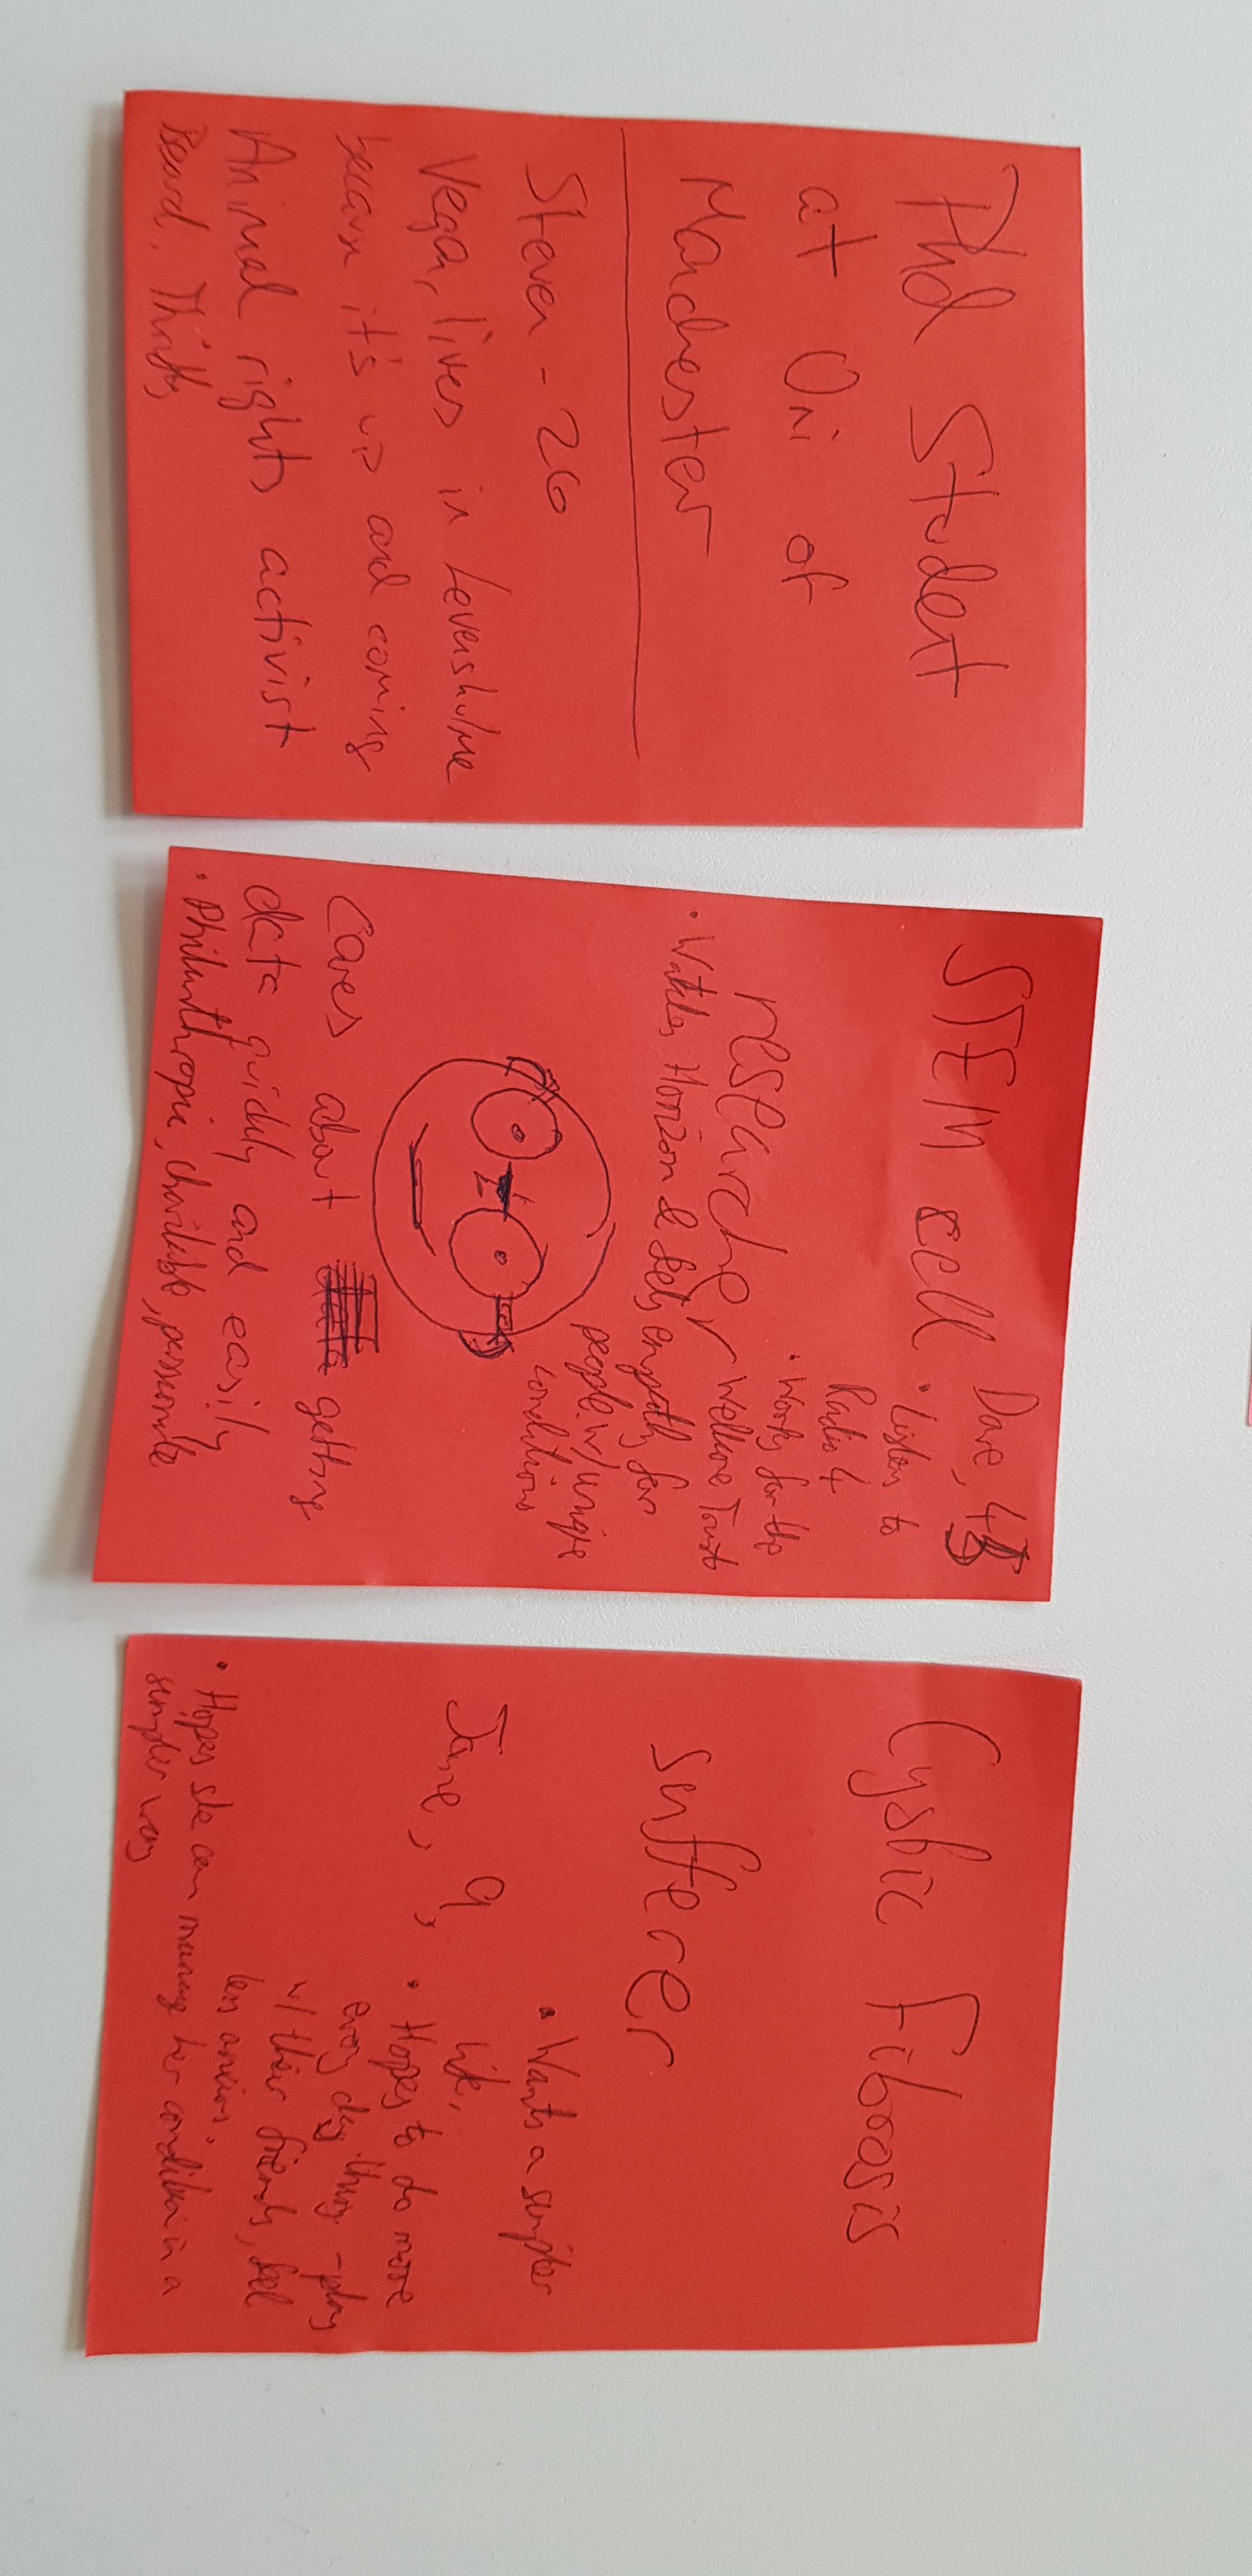 Phd Student
at Uni of
Manchester
Steven - 26
Vegan, lives in Levenshulme
because it's up and coming
Animal rights activist
Beard. Thrifty
STEM cell
researcher
Dave, 45
• Listens to
Radio 4
• Works for the
Wellcome Trust
• Watches Horizon & feels empathy for
people w/ unique
conditions
Cares about getting
data quickly and easily
• Philanthropic, charitable, passionate
Cystic Fibrosis
sufferer
Jane, 9,
• Wants a simpler
life,
• Hopes to do more
every day things - play
w/ their friends, feel
less anxious.
• Hopes she can manage her condition in a
simpler way